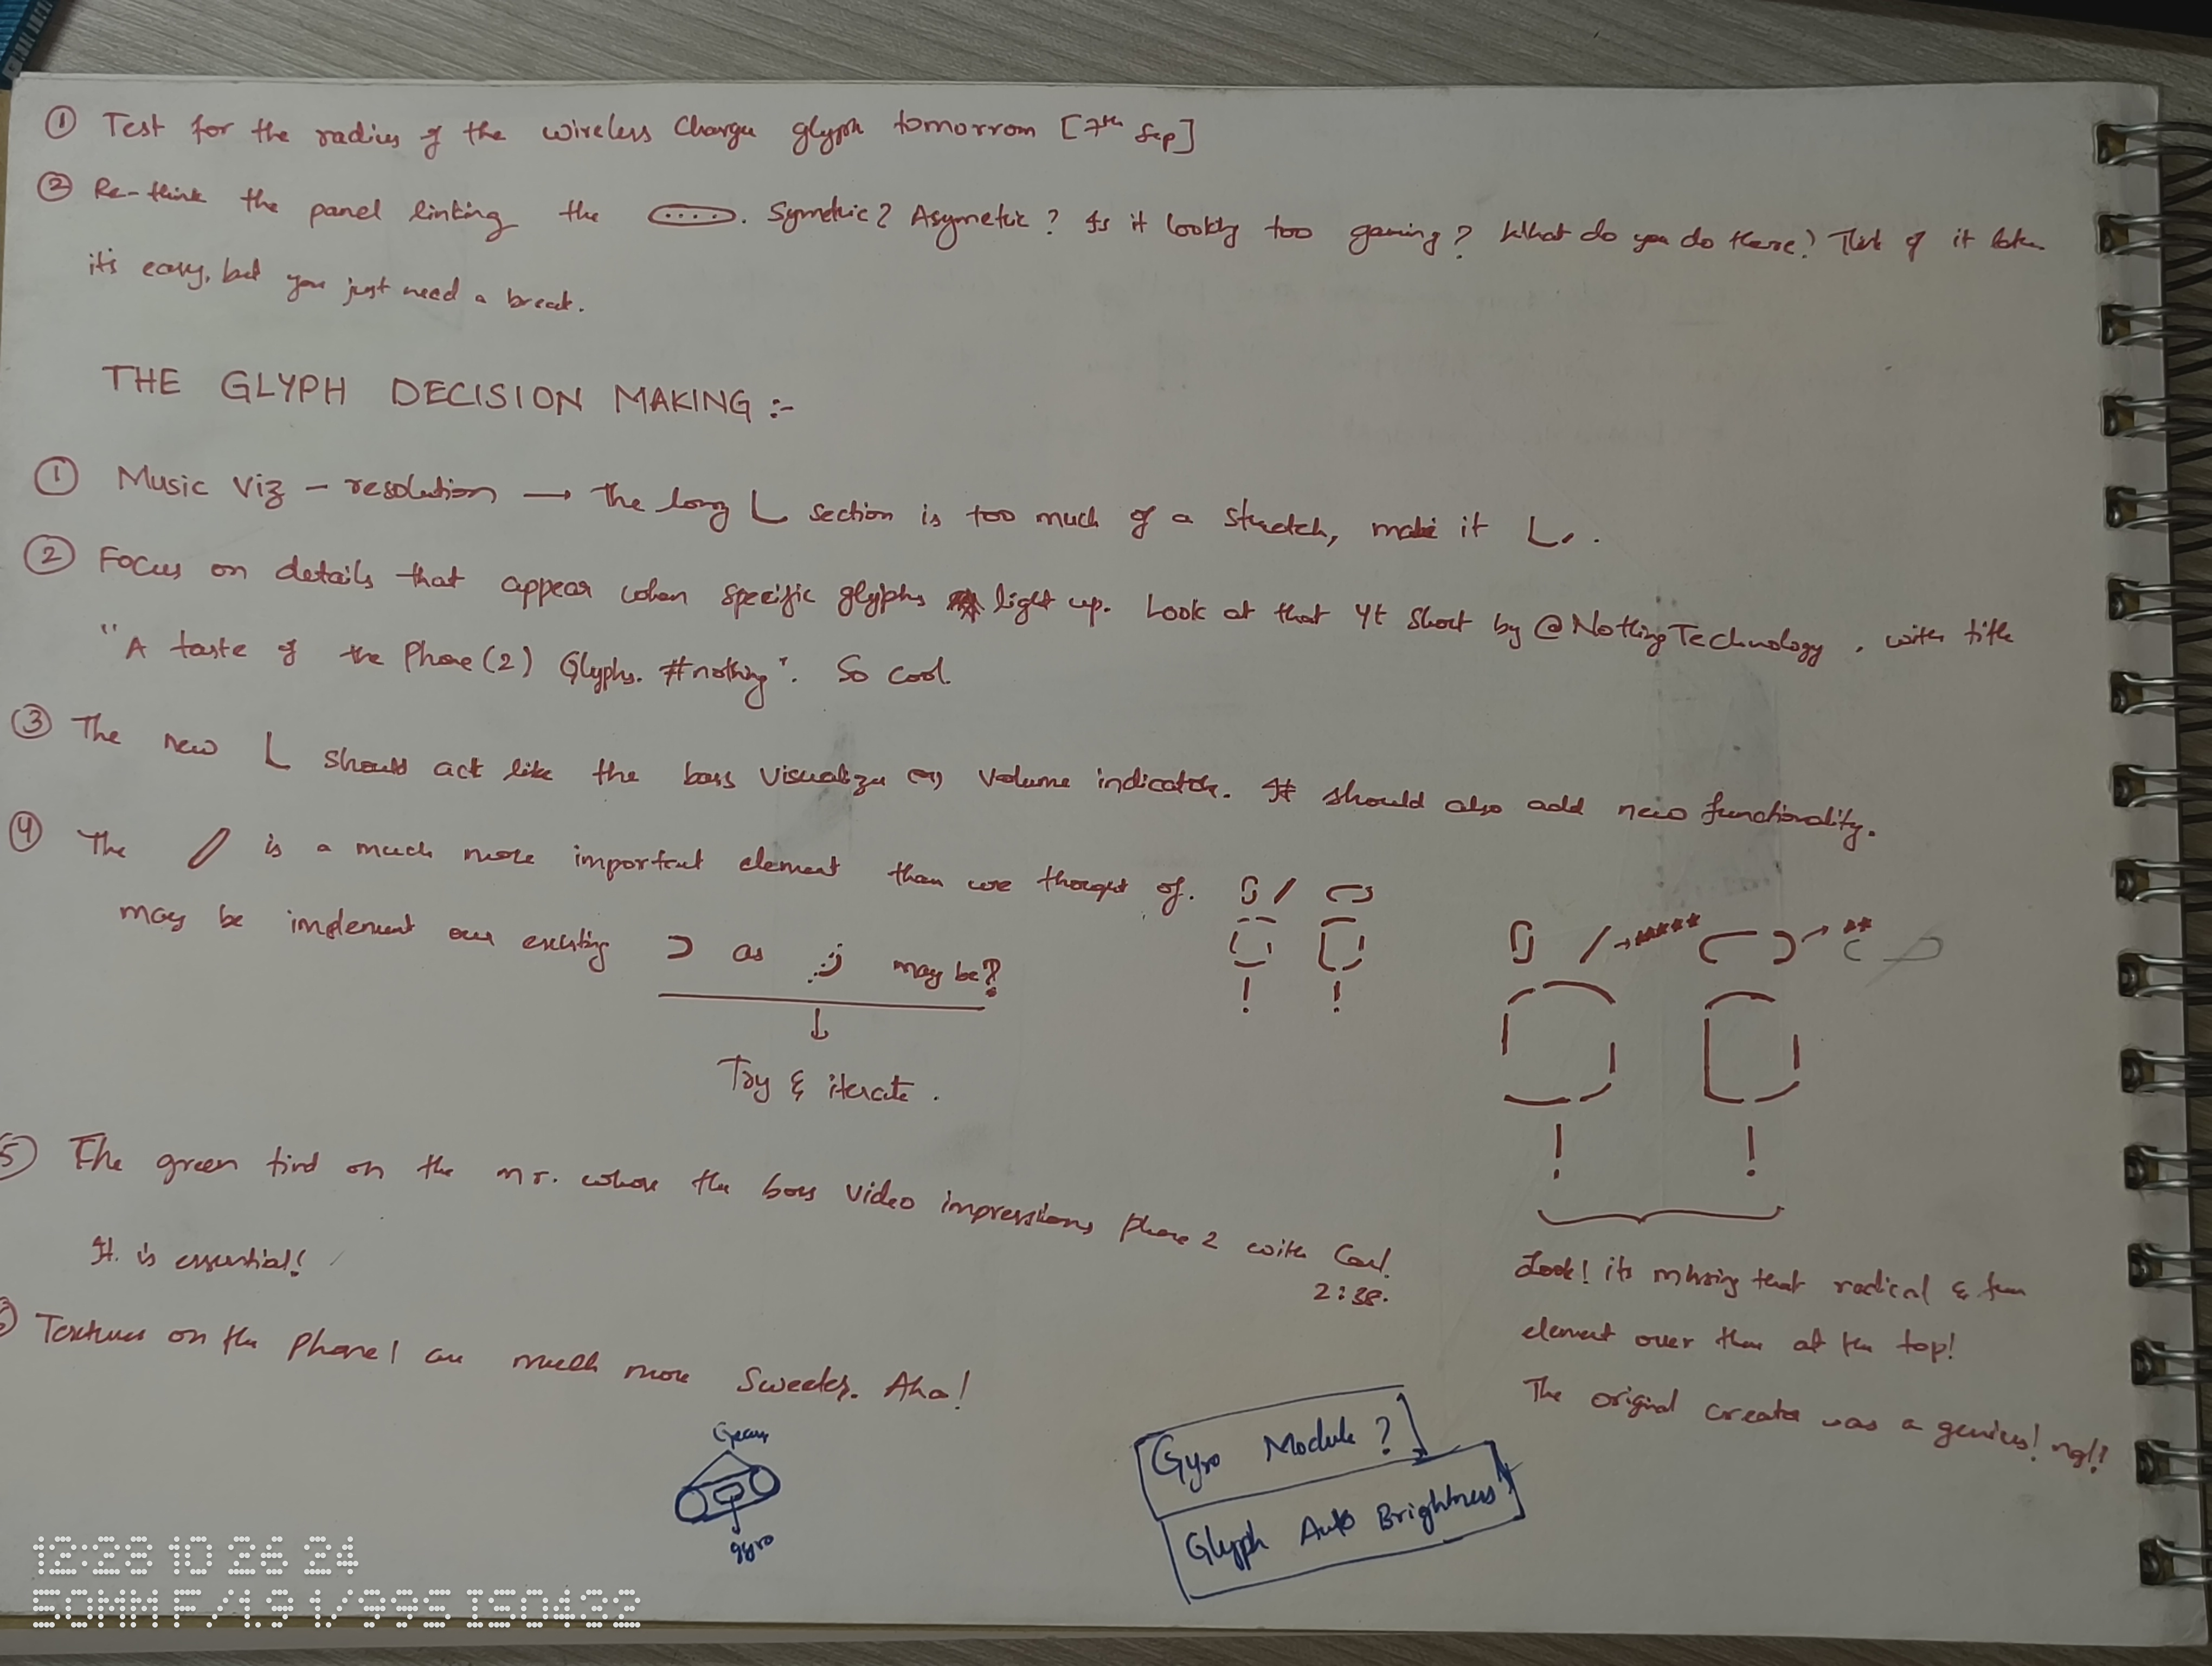 ① Test for the radius of the wireless charger glyph tomorrow [7th Sep]
② Re-think the panel linking the . Symetric? Asymetric? Is it looking too gaming? What do you do there? it
it's easy, but you just need a break.
THE GLYPH DECISION MAKING :-
① Music Viz - resolution → The long L section is too much of a stretch, make it L.
② Focus on details that appear when specific glyphs light up. Look at that Yt Short by @NothingTechnology, with title
"A taste of the Phone (2) Glyphs. #nothing". So cool
③ The new L should act like the bass visualizer volume indicator. It should also add new functionality.
④ The is a much more important element than we thought of.
may be implement our existing as may be?
↓
Try & iterate.
⑤ The green on the mr. whose the boss video impressions phone 2 with Carl.
2:38.
It is essential!
Textures on the Phone 1 are much more sweeter. Aha!
Look! its missing that radical & fun
element over there at the top!
The original creator was a genius! ngl!
Gears
gyro
Gyro Module?
Glyph Auto Brightness
12:28 10 26 24
50MM F/1.9 1/99S ISO432